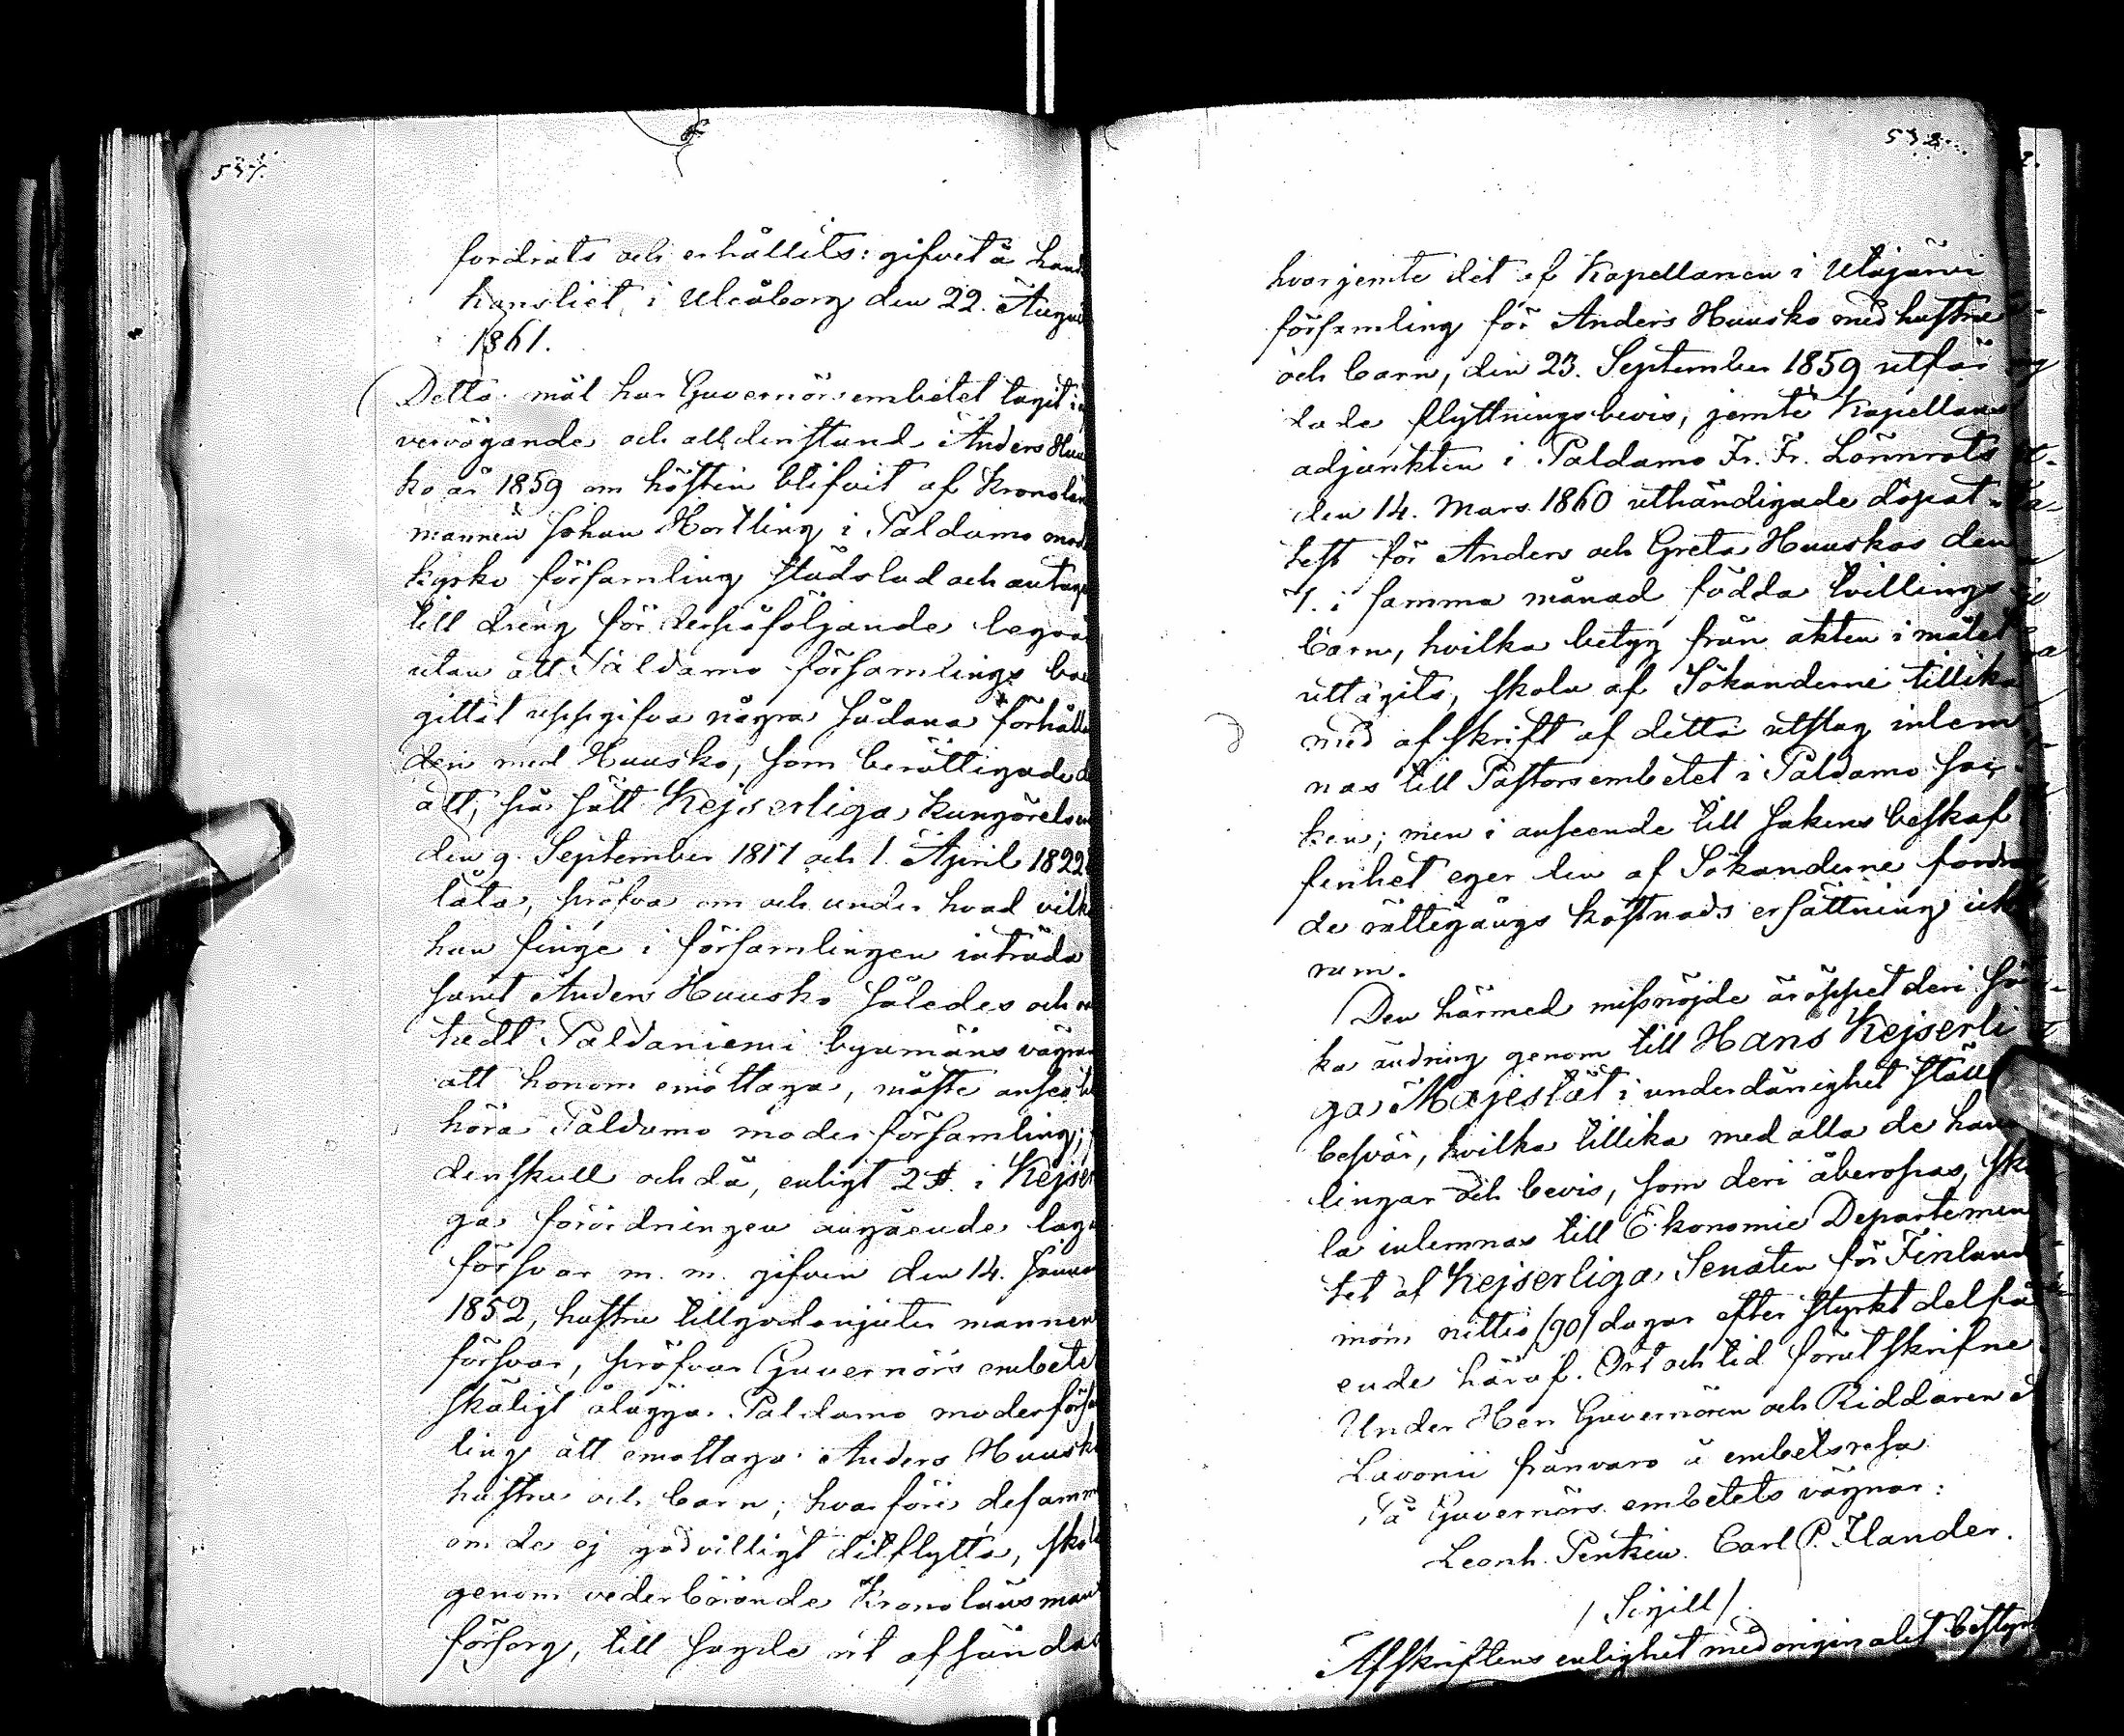 537.
fordrats och erhållits: gifvet å Land
kansliet, i Uleåborg den 22. Augus
1861.
Detta mål har Guvernörsembetet tagit i
öfvervägande och alldenstund Anders Huus
ko år 1859 om hösten blifvit af Kronolän
mannen Johan Hortling i Paldamo mode
kyrko församling städslad och antag
till dräng för derpåföljande legoå
utan att Paldamo församlings bo
gittat uppgifva några sådana förhålla
den med Huusko, som berättigade d
att, på sätt Kejserliga Kungörelser
den 9. September 1817 och 1. April 1822
låta, pröfva om och under hvad vilk
han finge i församlingen inträda
samt Anders Huusko således och
tedt Paldaniemi byamäns vägran
att honom emottaga, måste anses
höra Paldamo moder församling;
denskull och då, enligt 2 §. i Kejser
ga förordningen angående laga
försvar m. m. gifven den 14. Januar
1852, hustru tillgodonjuter mannens
försvar, pröfvar Guvernörs embetet
skäligt ålägga Paldamo moderförsa
ling att emottaga Anders Huusko
hustru och barn; hvarföre desamma
om de ej godvilligt ditflytta, skola
genom vederbörande Kronolänsman
försorg, till sagde ort afsändas
538.
hvarjemte det af Kapellanen i Utajärvi
församling för Anders Huusko med hustru
och barn, den 23. September 1859 utfär
dade flyttningsbevis, jemte Kapellans
adjunkten i Paldamo Fr. Fr. Lönnrots
den 14. Mars 1860 uthändigade dopat
test för Anders och Greta Huuskos den
7. i samma månad födda tvillings
barn, hvilka betyg från akten i målet
uttagits, skola af Sökanderne tillika
med afskrift af detta utslag inlem
nas till Pastorsembetet i Paldamo soc
ken; men i anseende till sakens beskaf
fenhet eger den af Sökanderne fordra
de rättegångs kostnads ersättning ick
rum.
Den härmed missnöjde är öppet deri sö
ka ändring genom till Hans Kejserli
ga Majestät i underdånighet ställ
besvär, hvilka tillika med alla de hand
lingar och bevis, som deri åberopas, sko
la inlemnas till Ekonomie Departemen
tet af Kejserliga Senaten för Finland
inom nittio /90/ dagar efter styrkt delfå
ende häraf. Ort och tid förut skrifne
Under Herr Guvernören och Riddaren
Lavonii frånvaro å embetsresa
På Guvernörs embetets vägnar:
Leonh. Pentzin. Carl P. Ilander.
/Sigill/.
Afskriftens enlighet med originalet bestyr